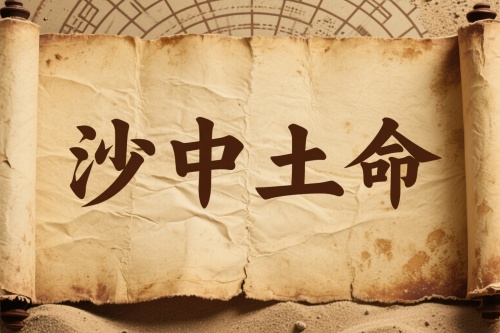 沙中土命